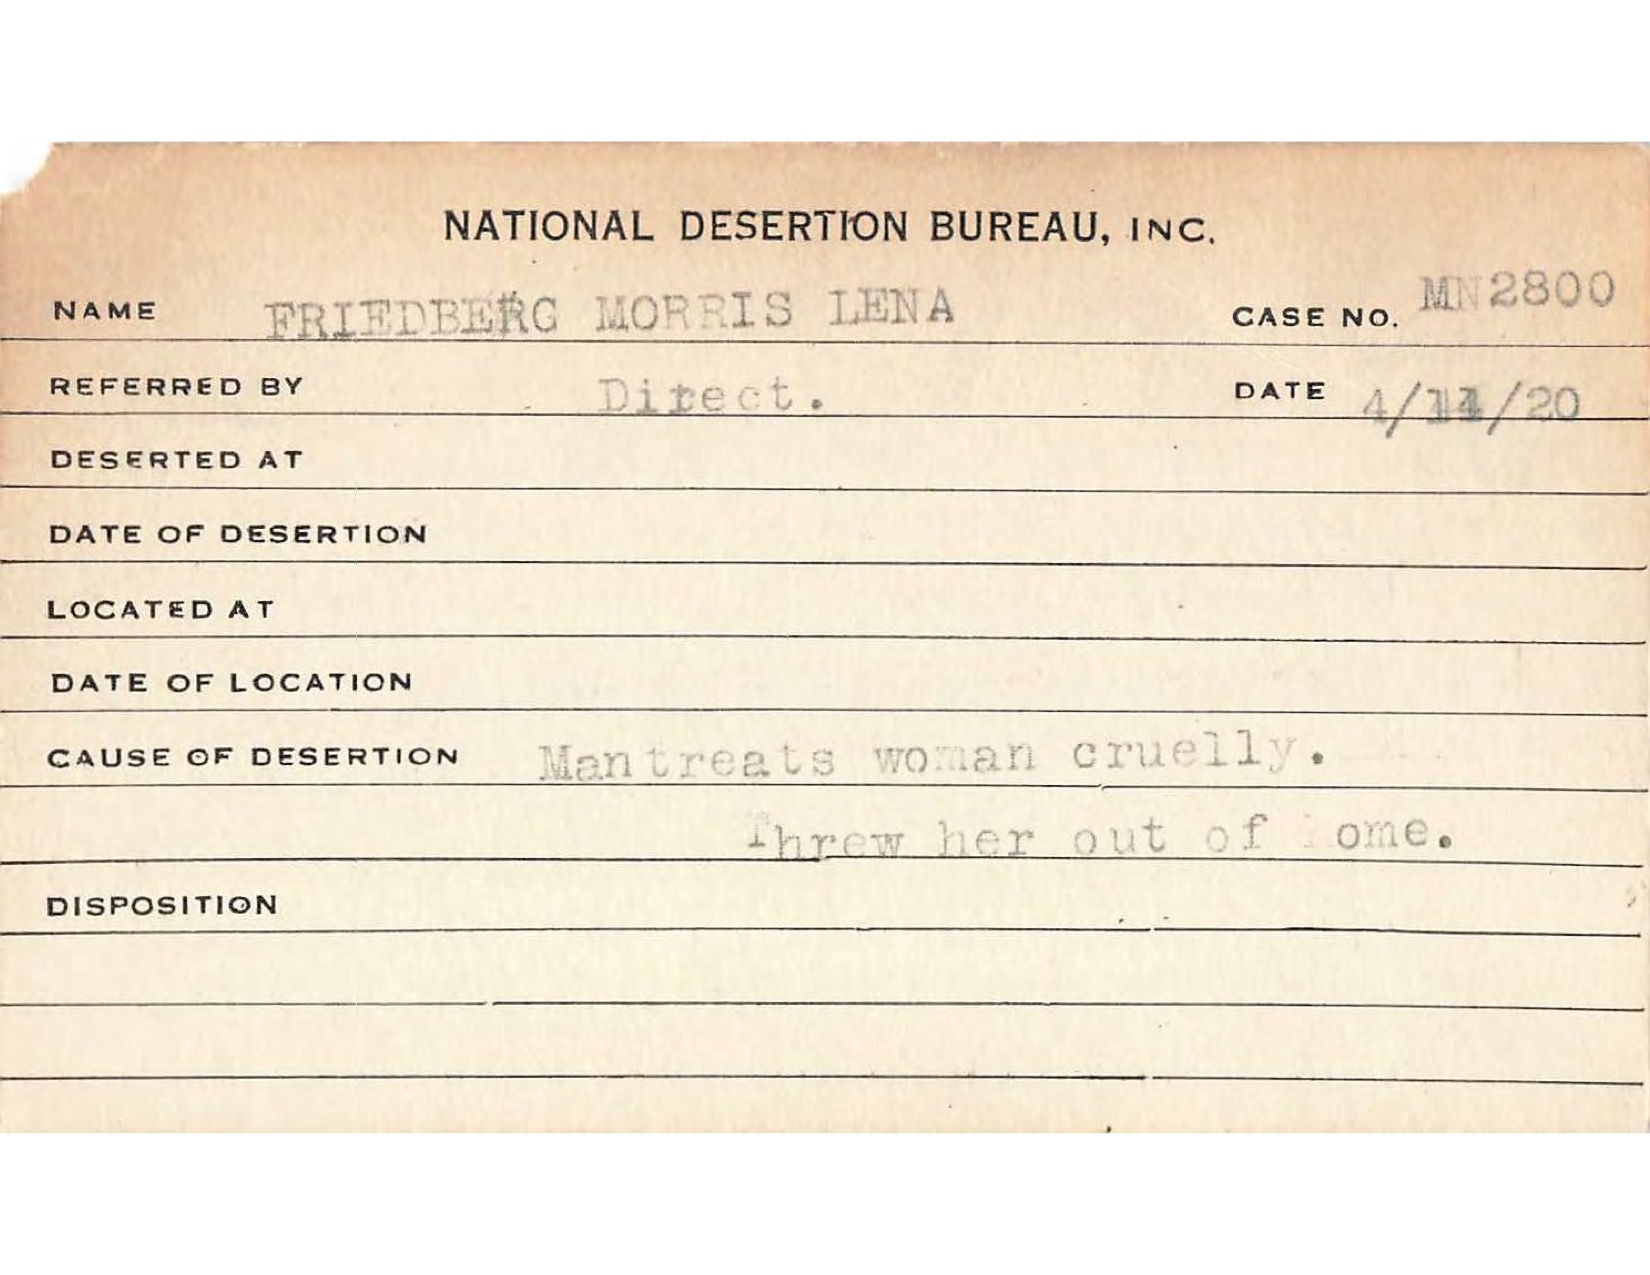 NATIONAL DESERTION BUREAU, INC.
NAME FRIEDBERG MORRIS LENA CASE NO. MN2800
REFERRED BY Direct. DATE 4/14/20
DESERTED AT
DATE OF DESERTION
LOCATED AT
DATE OF LOCATION
CAUSE OF DESERTION Man treats woman cruelly.
Threw her out of home.
DISPOSITION